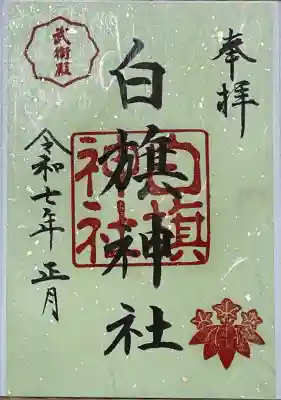 奉拝
白旗神社
白旗
神社
武衛殿
令和七年 正月